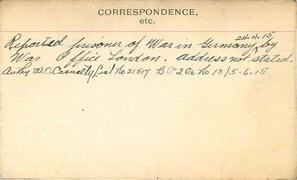 CORRESPONDENCE,
etc.
24.4.15
Reported prisoner of War in Germany by
War Office London. Address not stated.
Authy W.O. Casualty List No 21517 B 2 No 13/5-6.15